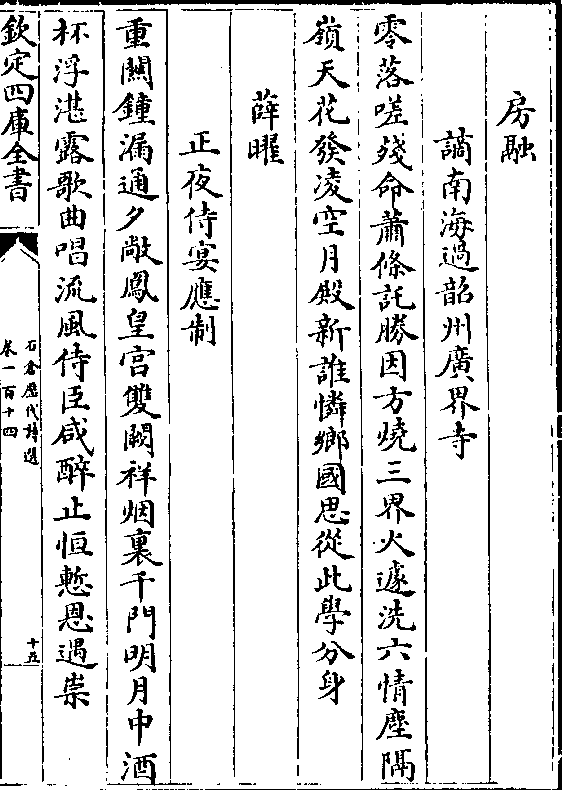 房融
謫南海過韶州廣界寺
零落嗟殘命蕭條託勝因方燒三界火遽洗六情塵隔
嶺天花發凌空月殿新誰憐鄉國思從此學分身
薛曜
正夜侍宴應制
重關鍾漏通夕敞鳳皇宮雙闕祥烟裏千門明月中酒
杯浮湛露歌曲唱流風侍臣咸醉止恒慙恩遇崇
欽定四庫全書
石倉歷代詩選
卷一百十四
十五